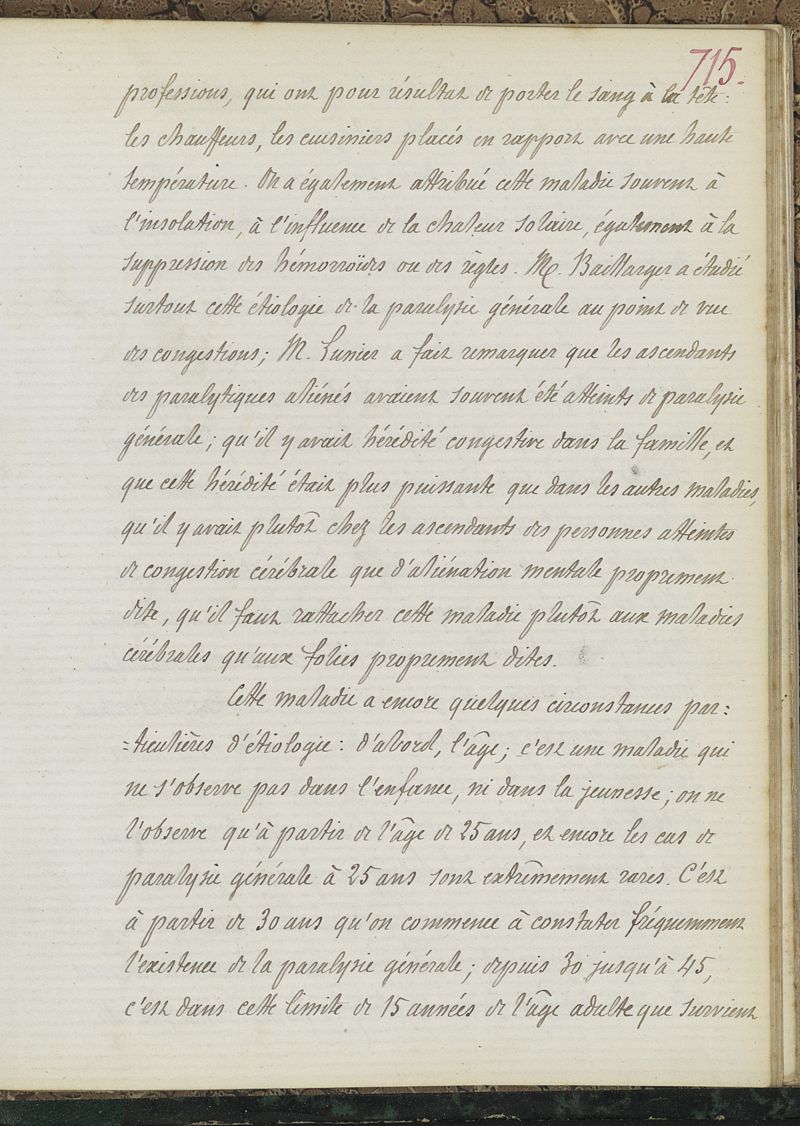 715.
professions, qui ont pour résultat de porter le sang à la tête :
les chauffeurs, les cuisiniers placés en rapport avec une haute
température. On a également attribué cette maladie souvent à
l'insolation, à l'influence de la chaleur solaire, également à la
suppression des hémorroïdes ou des règles. M. Baillarger a étudié
surtout cette étiologie de la paralysie générale au point de vue
des congestions ; M. Lunier a fait remarquer que les ascendants
des paralytiques aliénés avaient souvent été atteints de paralysie
générale ; qu'il y avait hérédité congestive dans la famille, et
que cette hérédité était plus puissante que dans les autres maladies,
qu'il y avait plutôt chez les ascendants des personnes atteintes
de congestion cérébrale que d'aliénation mentale proprement
dite, qu'il faut rattacher cette maladie plutôt aux maladies
cérébrales qu'aux folies proprement dites.
Cette maladie a encore quelques circonstances par=
=ticulières d'étiologie : d'abord, l'âge ; c'est une maladie qui
ne s'observe pas dans l'enfance, ni dans la jeunesse ; on ne
l'observe qu'à partir de l'âge de 25 ans, et encore les cas de
paralysie générale à 25 ans sont extrêmement rares. C'est
à partir de 30 ans qu'on commence à constater fréquemment
l'existence de la paralysie générale ; depuis 30 jusqu'à 45,
c'est dans cette limite de 15 années de l'âge adulte que survient